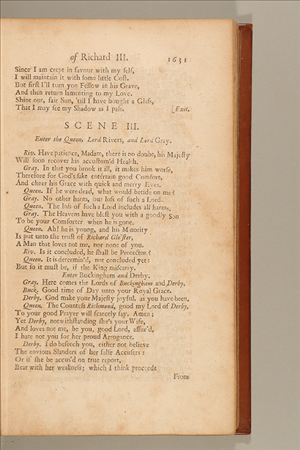 of Richard III. 1631
Since I am crept in favour with my self,
I will maintain it with some little Cost.
But first I'll turn yon Fellow in his Grave,
And then return lamenting to my Love.
Shine out, fair Sun, 'till I have bought a Glass,
That I may see my Shadow as I pass. [Exit.
SCENE III.
Enter the Queen, Lord Rivers, and Lord Gray.
Riv. Have patience, Madam, there is no doubt, his Majesty
Will soon recover his accustom'd Health.
Gray. In that you brook it ill, it makes him worse,
Therefore for God's sake entertain good Comfort,
And cheer his Grace with quick and merry Eyes.
Queen. If he were dead, what would betide on me?
Gray. No other harm, but loss of such a Lord.
Queen. The loss of such a Lord includes all harms.
Gray. The Heavens have blest you with a goodly Son
To be your Comforter when he is gone.
Queen. Ah! he is young, and his Minority
Is put unto the trust of Richard Glo'ster,
A Man that loves not me, nor none of you.
Riv. Is it concluded, he shall be Protector?
Queen. It is determin'd, not concluded yet:
But so it must be, if the King miscarry.
Enter Buckingham and Derby.
Gray. Here comes the Lords of Buckingham and Derby.
Buck. Good time of Day unto your Royal Grace.
Derby. God make your Majesty joyful, as you have been.
Queen. The Countess Richmond, good my Lord of Derby,
To your good Prayer will scarcely say, Amen;
Yet Derby, notwithstanding she's your Wife,
And loves not me, be you, good Lord, assur'd,
I hate not you for her proud Arrogance.
Derby. I do beseech you, either not believe
The envious Slanders of her false Accusers:
Or if she be accus'd on true report,
Bear with her weakness; which I think proceeds
From